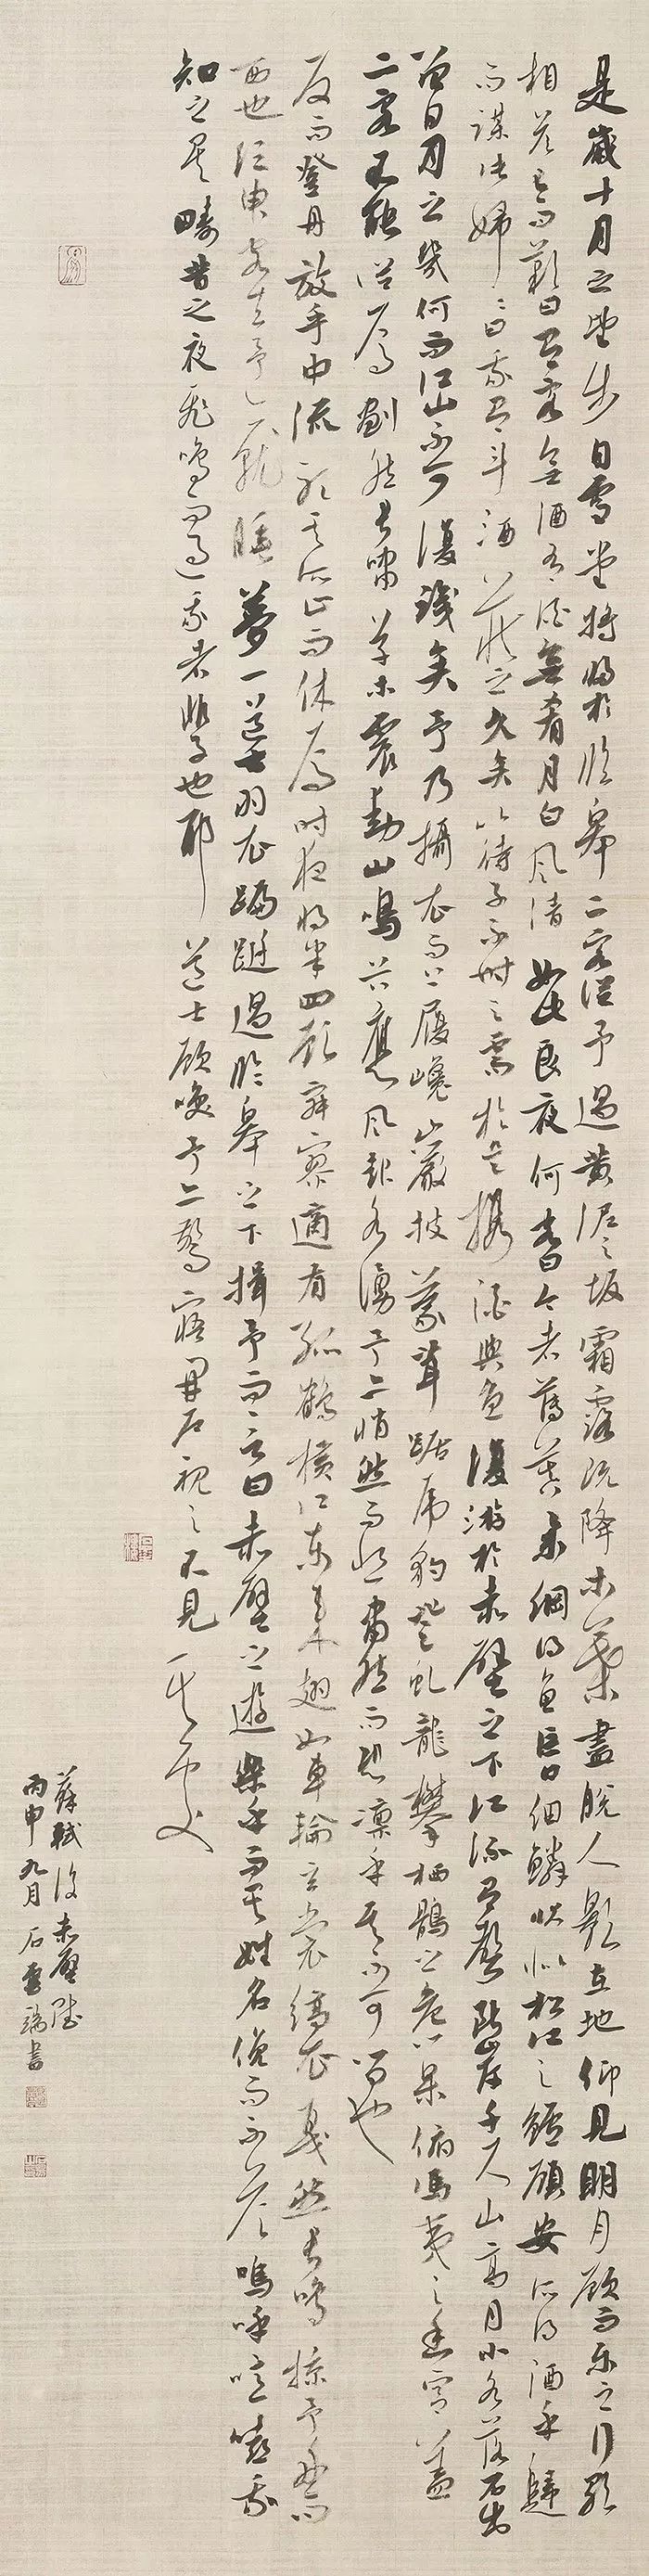 是歲十月之望步自雪堂將歸於臨皋二客從予過黃泥之坂霜露既降木葉盡脫人影在地仰見明月顧而樂之行歌
相答已而歎曰有客無酒有酒無肴月白風清如此良夜何客曰今者薄暮舉網得魚巨口細鱗狀似松江之鱸顧安所得酒乎歸
而謀諸婦婦曰我有斗酒藏之久矣以待子不時之需於是攜酒與魚復游於赤壁之下江流有聲斷岸千尺山高月小水落石出
曾日月之幾何而江山不可復識矣予乃攝衣而上履巉巖披蒙茸踞虎豹登虬龍攀栖鶻之危巢俯馮夷之幽宮蓋
二客不能從焉劃然長嘯草木震動山鳴谷應風起水湧予亦悄然而悲肅然而恐凜乎其不可留也
反而登舟放乎中流聽其所止而休焉時夜將半四顧寂寥適有孤鶴橫江東來翅如車輪玄裳縞衣戛然長鳴掠予舟而
西也須臾客去予亦就睡夢一道士羽衣蹁躚過臨皋之下揖予而言曰赤壁之遊樂乎問其姓名俛而不答嗚呼噫嘻我
知之矣疇昔之夜飛鳴而過我者非子也耶道士顧笑予亦驚寤開戶視之不見其處
蘇軾後赤壁賦
丙申九月石雪瑞書